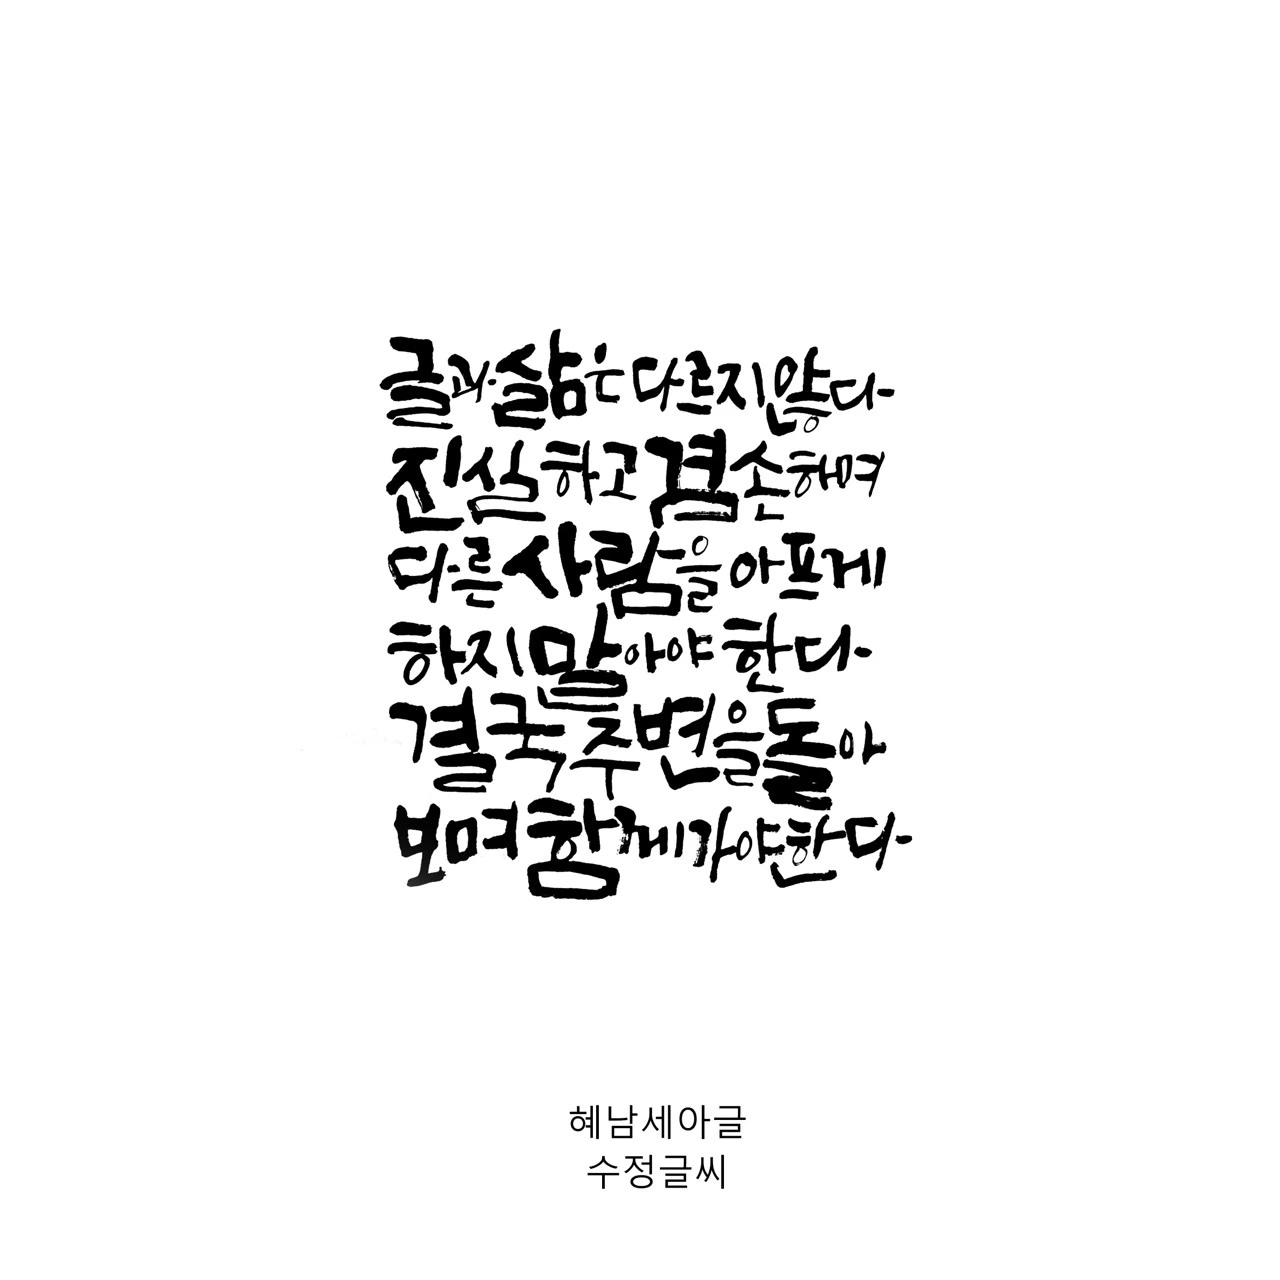 글과 삶은 다르지 않다
진실하고 겸손하며
다른 사람을 아프게
하지 말아야 한다
결국 주변을 돌아
보며 함께 가야 한다
혜남세아글
수정글씨